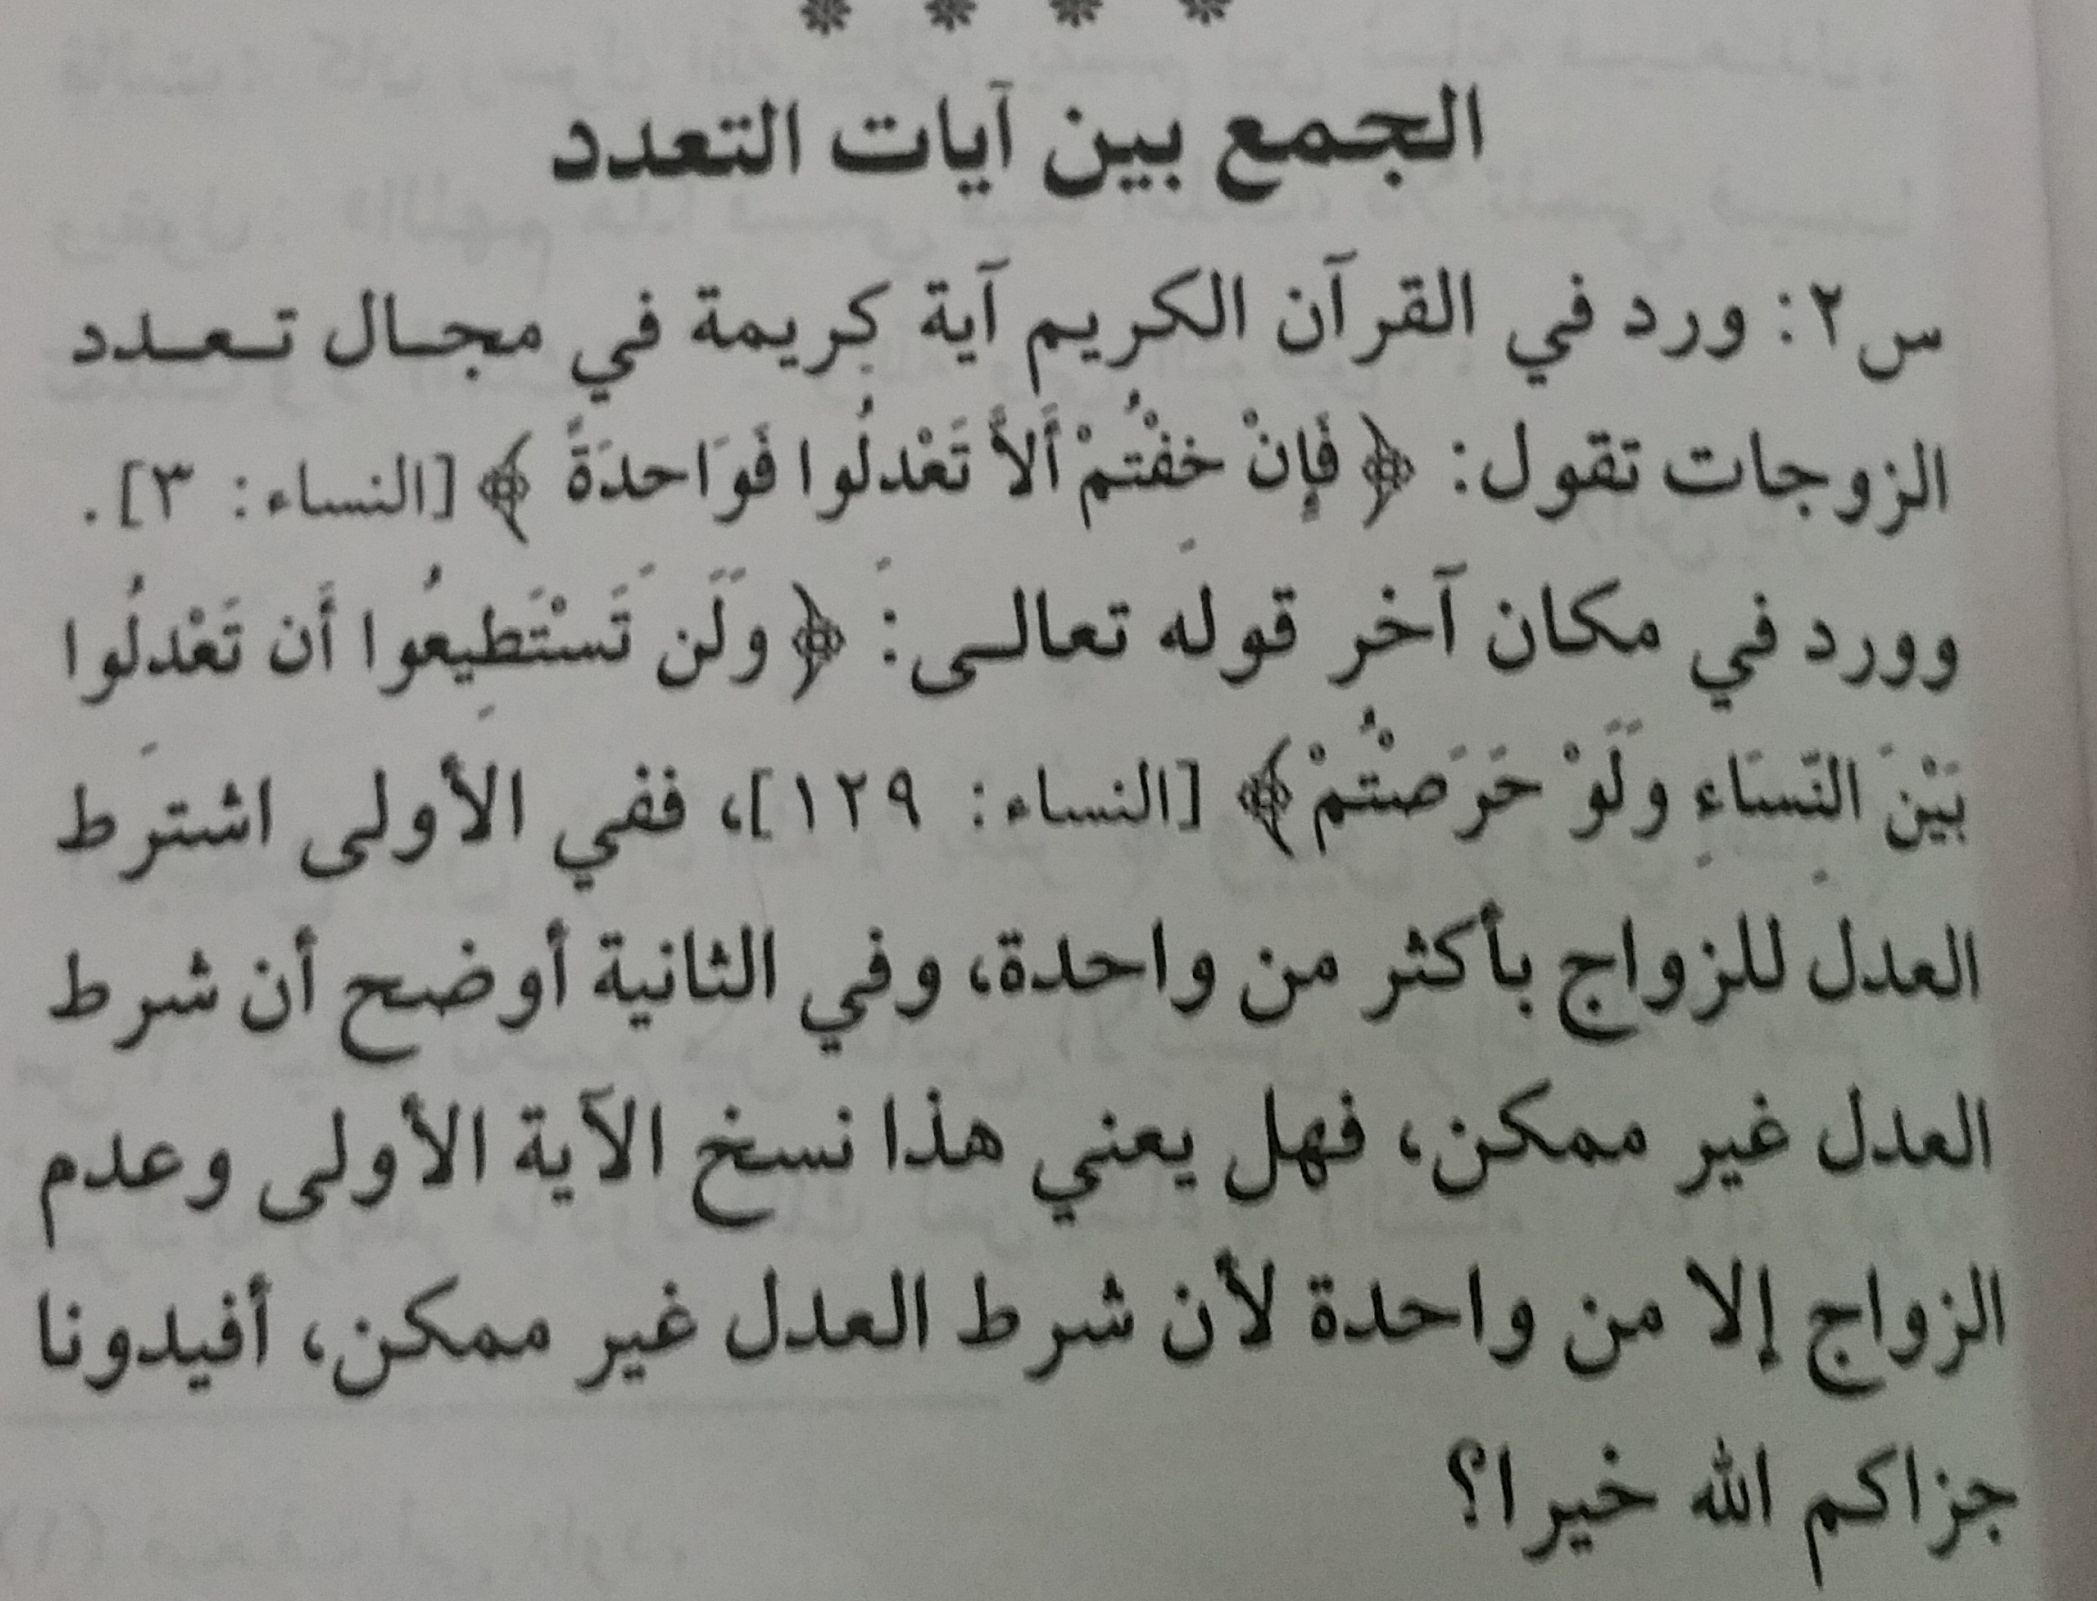 الجمع بين آيات التعدد
س٢: ورد في القرآن الكريم آية كريمة في مجال تعدد
الزوجات تقول: ﴿فَإِنْ خِفْتُمْ أَلاَّ تَعْدِلُوا فَوَاحِدَةً﴾ [النساء: ٣].
وورد في مكان آخر قوله تعالى: ﴿وَلَن تَسْتَطِيعُوا أَن تَعْدِلُوا
بَيْنَ النِّسَاءِ وَلَوْ حَرَصْتُمْ﴾ [النساء: ١٢٩]، ففي الأولى اشترط
العدل للزواج بأكثر من واحدة، وفي الثانية أوضح أن شرط
العدل غير ممكن، فهل يعني هذا نسخ الآية الأولى وعدم
الزواج إلا من واحدة لأن شرط العدل غير ممكن، أفيدونا
جزاكم الله خيرا؟